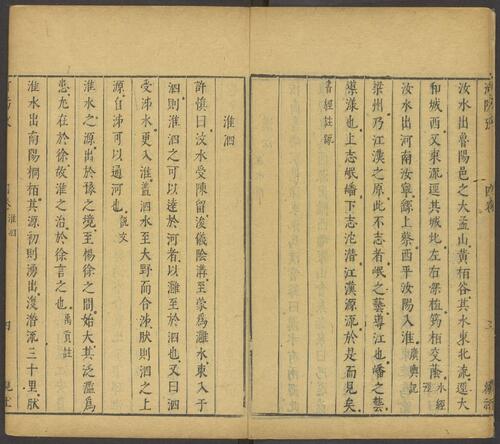 汝水出魯陽邑之大孟山黃栢谷其水東北流逕大
和城西又東流逕其城北左右深植筠栢交蔭水經
汝水出河南汝寧縣上蔡西平汝陽入淮廣輿記
雍州乃江漢之原此不志者岷之藝導江也嶓之藝
導漾也上志岷嶓下志沱潛江漢源流於是而見矣
書經註疏
淮泗
許慎曰汶水受陳留浚儀陰溝至蒙為灉水東入于
泗則淮泗之可以達於河者以灉至於泗也又曰泗
受沛水更入淮蓋泗水至大野而合沛肰則泗之上
源自沛可以通河也說文
淮水之源出於豫之境至楊徐之間始大其泛濫為
患尤在於徐故淮之治於徐言之也禹貢註
淮水出南陽桐栢其源初則湧出復潛流三十里肰
淮泗
四